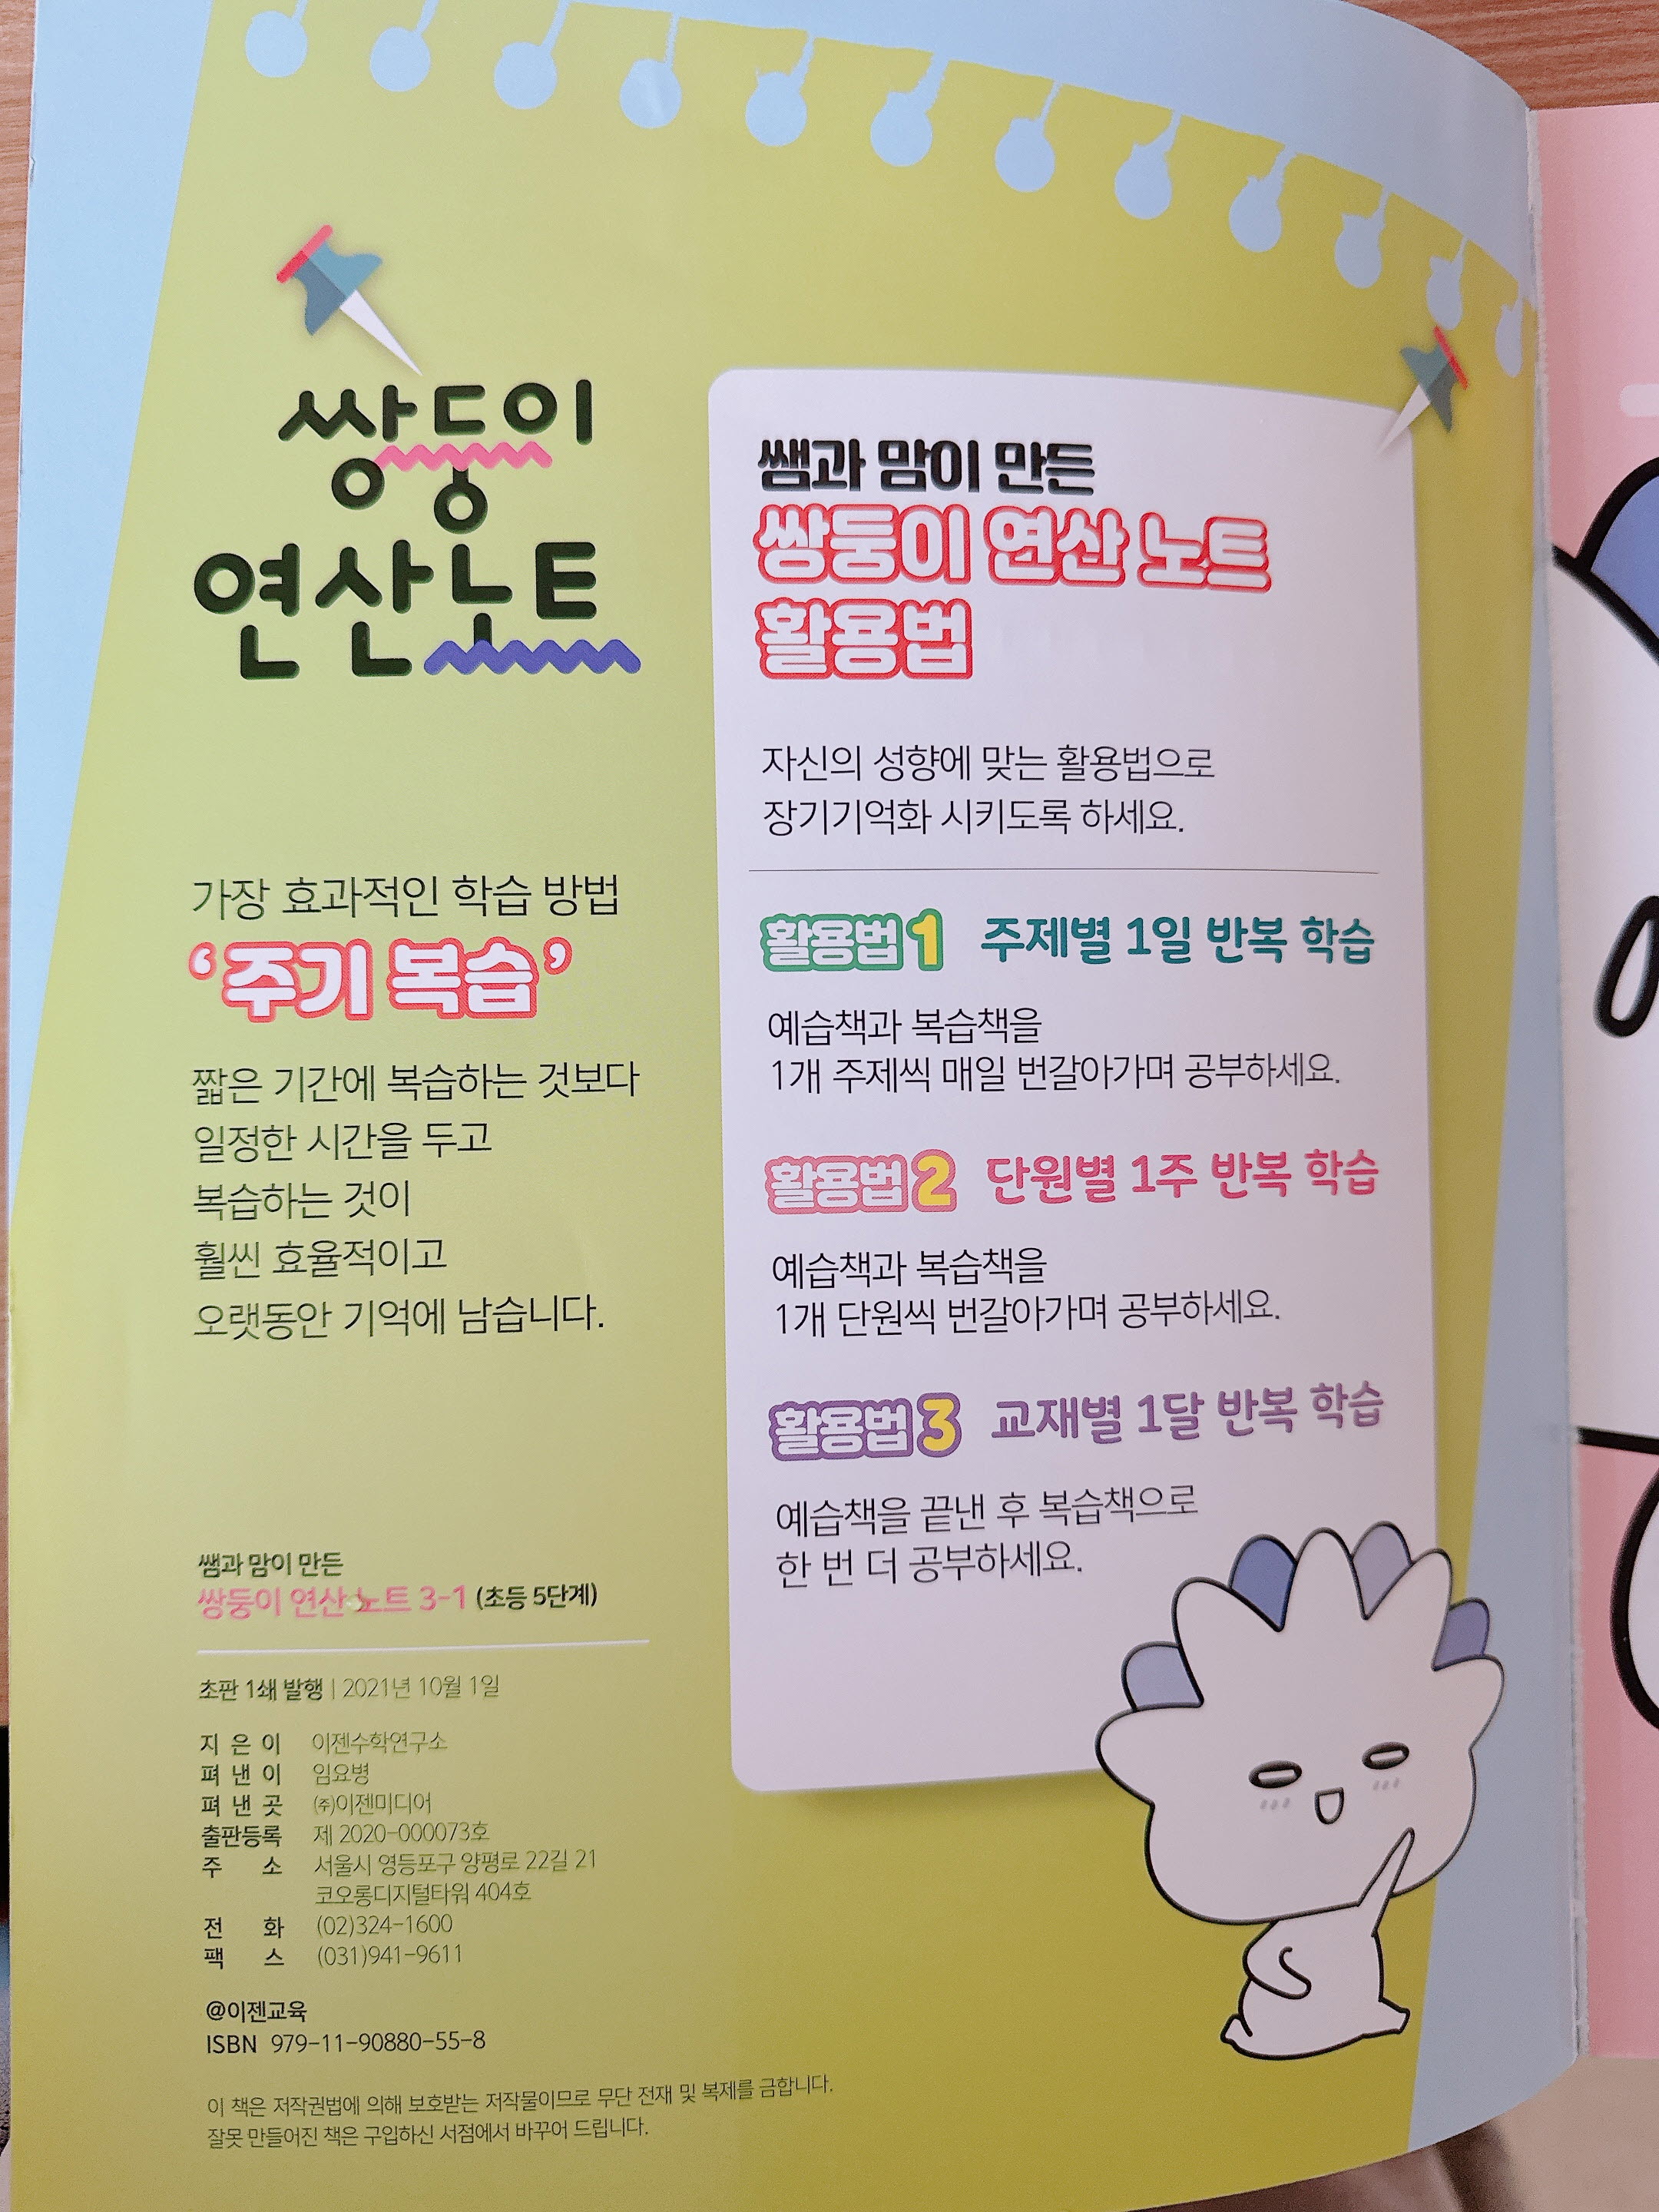 쌍둥이
연산노트
가장 효과적인 학습 방법
‘주기 복습’
짧은 기간에 복습하는 것보다
일정한 시간을 두고
복습하는 것이
훨씬 효율적이고
오랫동안 기억에 남습니다.
쌤과 맘이 만든
쌍둥이 연산 노트 3-1 (초등 5단계)
초판 1쇄 발행 | 2021년 10월 1일
지은이 이젠수학연구소
펴낸이 임요병
펴낸곳 ㈜이젠미디어
출판등록 제 2020-000073호
주 소 서울시 영등포구 양평로 22길 21
코오롱디지털타워 404호
전 화 (02)324-1600
팩 스 (031)941-9611
@이젠교육
ISBN 979-11-90880-55-8
이 책은 저작권법에 의해 보호받는 저작물이므로 무단 전재 및 복제를 금합니다.
잘못 만들어진 책은 구입하신 서점에서 바꾸어 드립니다.
쌤과 맘이 만든
쌍둥이 연산 노트
활용법
자신의 성향에 맞는 활용법으로
장기기억화 시키도록 하세요.
활용법1 주제별 1일 반복 학습
예습책과 복습책을
1개 주제씩 매일 번갈아가며 공부하세요.
활용법2 단원별 1주 반복 학습
예습책과 복습책을
1개 단원씩 번갈아가며 공부하세요.
활용법3 교재별 1달 반복 학습
예습책을 끝낸 후 복습책으로
한 번 더 공부하세요.